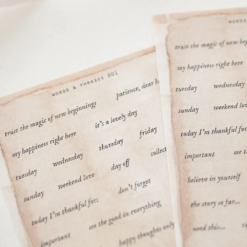 WORDS & PHRASES 001
trust the magic of new beginnings
patience, dear h
my happiness right here
it's a lovely day
tuesday wednesday thursday friday
sunday weekend love day off collect
today I'm thankful for: don't forget
important see the good in everything
happy thoughts only
trust the magic of new begin
my happiness right here
tuesday wednesday
sunday weekend love
today I'm thankful for:
important see the
believe in yourself
the story so far...
need this...